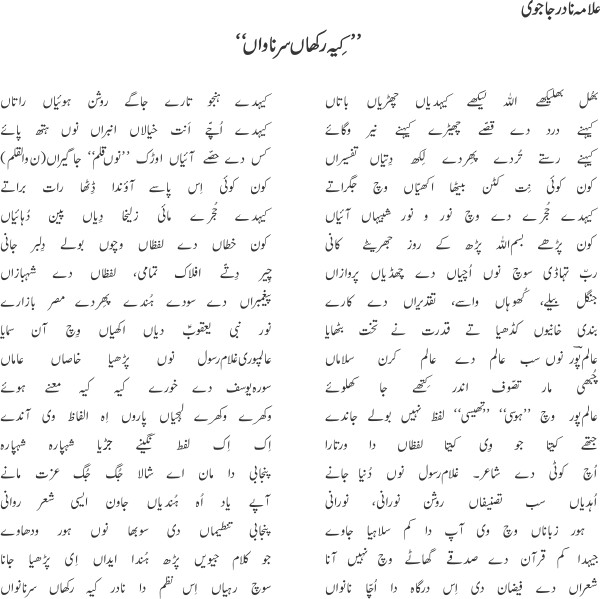 علامہ نادر جاجوی
”کیہ رکھاں سرناواں“
بھل بھلیکھے اللہ لیکھے کیہدیاں چھڑیاں باتاں کیہدے ہنجو تارے جاگے روشن ہوئیاں راتاں
کیہنے درد دے قصّے چھیڑے کیہنے نیر وگائے کیہدے اُچّے اُنت خیالاں انبراں نوں ہتھ پائے
کیہنے رستے تُردے پھردے لِکھ دِتیاں تفسیراں کس دے حصّے آئیاں اوڑک ”نوں قلم“ جاگیراں (ن والقلم)
کون کوئی نِت کٹن بیٹھا اکھیّاں وچ جگراتے کون کوئی اِس پاسے آؤندا ڈِٹھا رات براتے
کیہدے حُجرے دے وچ نور و نور شبیہاں آئیاں کیہدے حُجرے مائی زلیخا دِیاں پین دُہائیاں
کون پڑھے بسم اللہ پڑھ کے روز جھریٹے کانی کون خطاں دے لفظاں وچوں بولے دِلبر جانی
ربّ تہاڈی سوچ نوں اُچیاں دے چھڈیاں پروازاں چیر دِتّے افلاک تمامی، لفظاں دے شہبازاں
جنگل بیلے، کُھوہاں واسے، تقدیراں دے کارے پیغمبراں دے سودے ہُندے پھردے مصر بازارے
بندی خانیوں کڈھیا تے قدرت نے تخت بٹھایا نور نبی یعقوبؑ دیاں اکھیاں وِچ آن سمایا
عالم پور نوں سب عالم دے عالم کرن سلاماں عالمپوری غلام رسول نوں پڑھیا خاصاں عاماں
چُبھی مار تصّوف اندر کِتھے جا کھلوئے سورہ یوسف دے خورے کیہ کیہ معنے ہوئے
عالم پور وچ ”ہوسی“ ”تھیسی“ لفظ نہیں بولے جاندے وکھرے وکھرے لہجیاں پاروں اِہ الفاظ وی آندے
جتھے کیتا جو وی کیتا لفظاں دا ورتارا اِک اِک لفظ نگینے جڑیا شہپارہ شہپارہ
اُچ کوٹی دے شاعر۔ غلام رسول نوں دُنیا جانے پنجابی دا مان اے شالا جُگ جُگ عزت مانے
اُہدیاں سب تصنیفاں روشن نورانی، نورانی آپے یاد اُہ ہُندیاں جاون ایسی شعر روانی
ہور زباناں وچ وی آپ دا کم سلاہیا جاوے پنجابی تنظیماں دی سوبھا نوں ہور ودھاوے
جیہدا کم قرآن دے صدقے گھاٹے وچ نہیں آنا جو کلام جیویں پڑھ ہُندا ایداں اِی پڑھیا جانا
شعراں دے فیضان دی اِس درگاہ دا اُچّا نانواں سوچ رہیاں اِس نظم دا نادر کیہ رکھاں سرنانواں